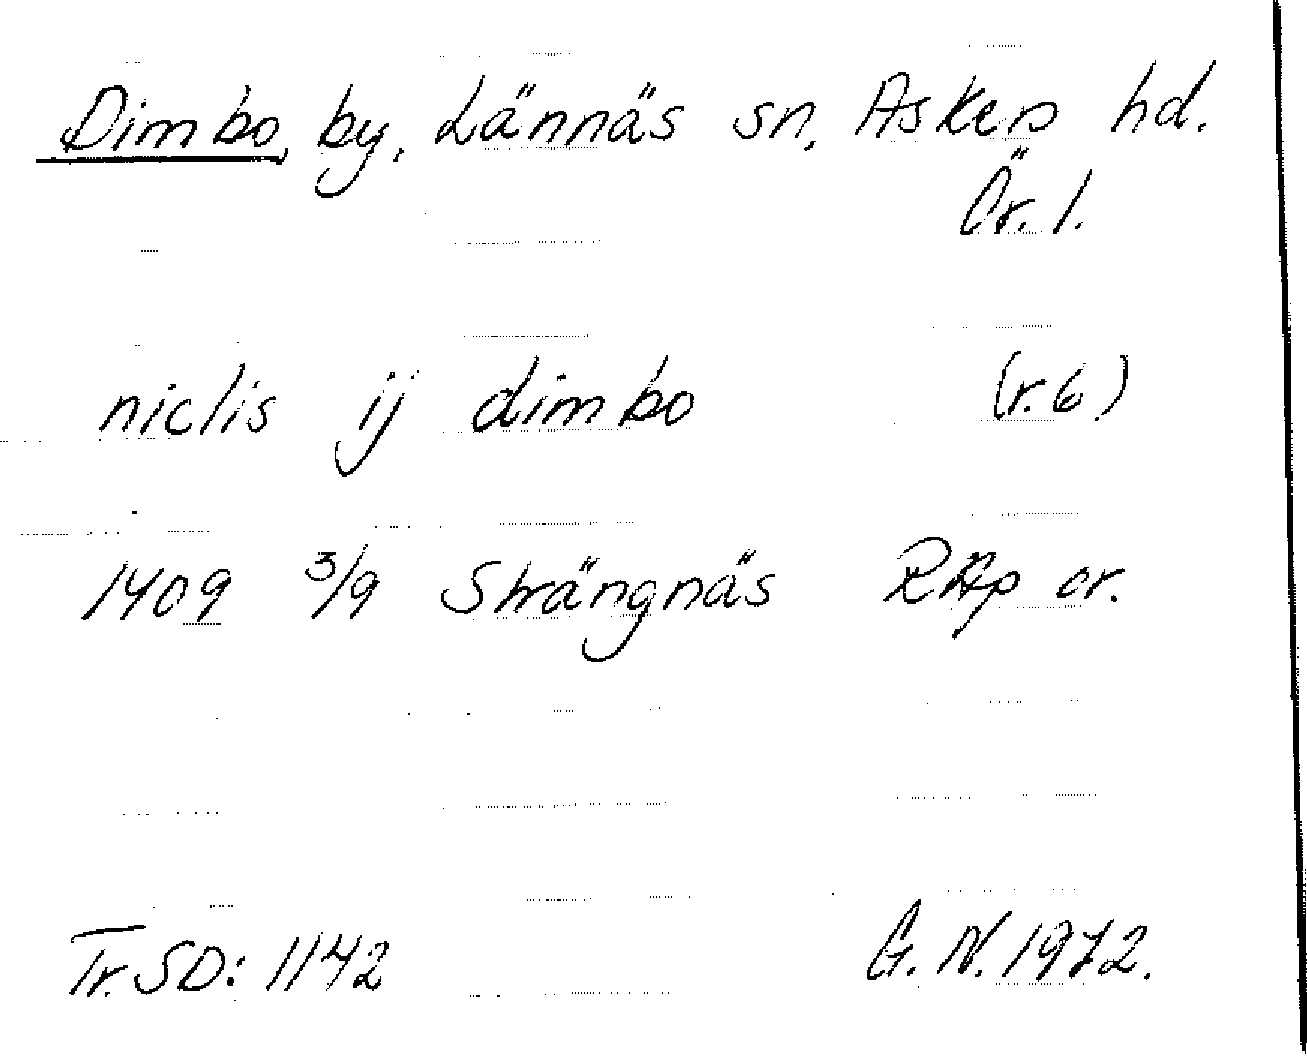 Dimbo, by, Lännäs sn, Askers hd.
Ör. l.
niclis ij dimbo (r. 6)
1409 3/9 Strängnäs RAp or.
Tr. SD: 1142 G. N. 1972.